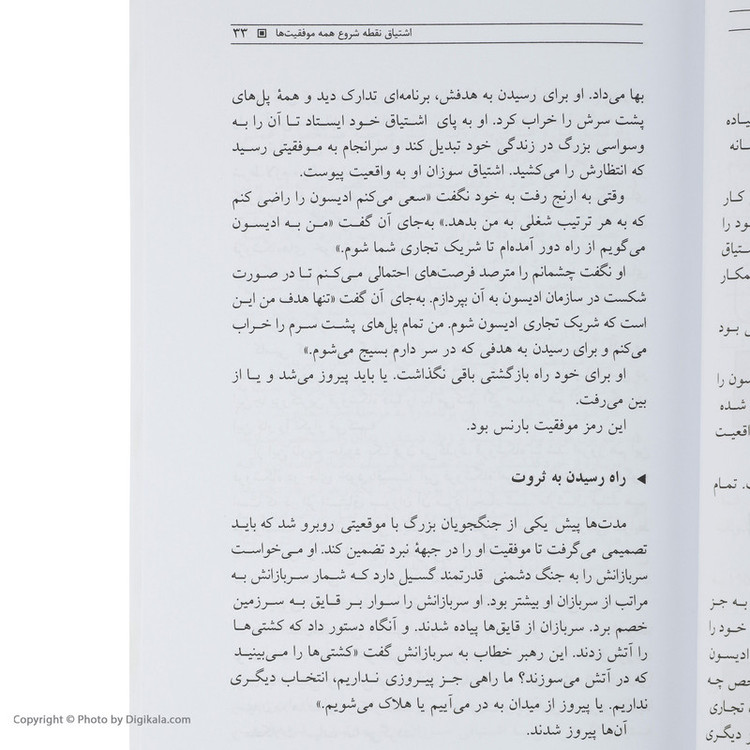 اشتیاق نقطه شروع همه موفقیت‌ها ▣ ۳۳
بها می‌داد. او برای رسیدن به هدفش، برنامه‌ای تدارک دید و همهٔ پل‌های
پشت سرش را خراب کرد. او به پای اشتیاق خود ایستاد تا آن را به
وسواسی بزرگ در زندگی خود تبدیل کند و سرانجام به موفقیتی رسید
که انتظارش را می‌کشید. اشتیاق سوزان او به واقعیت پیوست.
وقتی به ارنج رفت به خود نگفت «سعی می‌کنم ادیسون را راضی کنم
که به هر ترتیب شغلی به من بدهد.» به‌جای آن گفت «من به ادیسون
می‌گویم از راه دور آمده‌ام تا شریک تجاری شما شوم.»
او نگفت چشمانم را مترصد فرصت‌های احتمالی می‌کنم تا در صورت
شکست در سازمان ادیسون به آن بپردازم. به‌جای آن گفت «تنها هدف من این
است که شریک تجاری ادیسون شوم. من تمام پل‌های پشت سرم را خراب
می‌کنم و برای رسیدن به هدفی که در سر دارم بسیج می‌شوم.»
او برای خود راه بازگشتی باقی نگذاشت. یا باید پیروز می‌شد و یا از
بین می‌رفت.
این رمز موفقیت بارنس بود.
◀ راه رسیدن به ثروت
مدت‌ها پیش یکی از جنگجویان بزرگ با موقعیتی روبرو شد که باید
تصمیمی می‌گرفت تا موفقیت او را در جبههٔ نبرد تضمین کند. او می‌خواست
سربازانش را به جنگ دشمنی قدرتمند گسیل دارد که شمار سربازانش به
مراتب از سربازان او بیشتر بود. او سربازانش را سوار بر قایق به سرزمین
خصم برد. سربازان از قایق‌ها پیاده شدند. و آنگاه دستور داد که کشتی‌ها
را آتش زدند. این رهبر خطاب به سربازانش گفت «کشتی‌ها را می‌بینید
که در آتش می‌سوزند؟ ما راهی جز پیروزی نداریم، انتخاب دیگری
نداریم. یا پیروز از میدان به در می‌آییم یا هلاک می‌شویم.»
آن‌ها پیروز شدند.
Copyright © Photo by Digikala.com